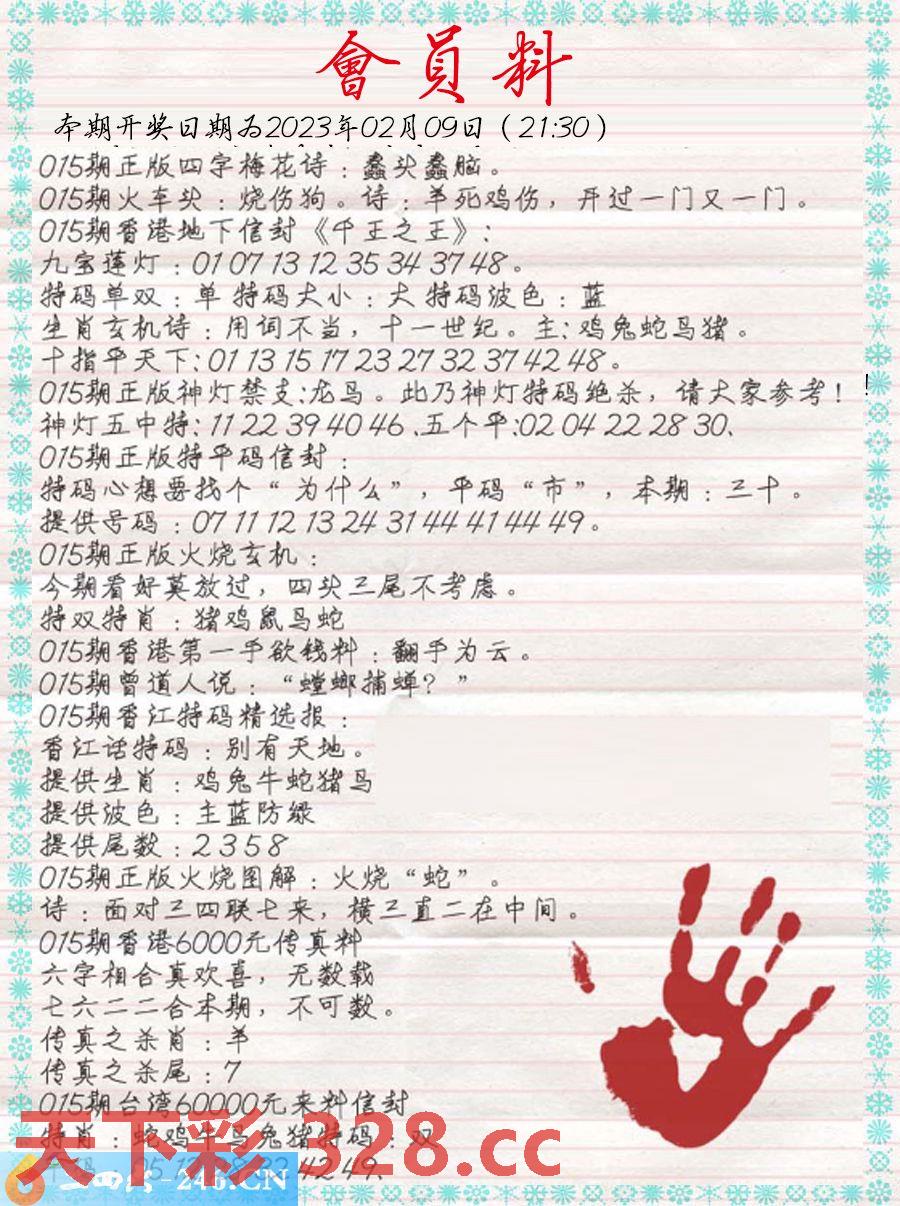 會員料
本期开奖日期为2023年02月09日（21:30）
015期正版四字梅花诗：蠢头蠢脑。
015期火车头：烧伤狗。诗：羊死鸡伤，开过一门又一门。
015期香港地下信封《千王之王》：
九宝莲灯：01 07 13 12 35 34 37 48。
特码单双：单 特码大小：大 特码波色：蓝
生肖玄机诗：用词不当，十一世纪。主:鸡兔蛇马猪。
十指平天下:01 13 15 17 23 27 32 37 42 48。
015期正版神灯禁支:龙马。此乃神灯特码绝杀，请大家参考！!
神灯五中特:11 22 39 40 46、五个平:02 04 22 28 30、
015期正版特平码信封：
特码心想要找个“为什么”，平码“市”，本期：三十。
提供号码：07 11 12 13 24 31 44 41 44 49。
015期正版火烧玄机：
今期看好莫放过，四头三尾不考虑。
特双特肖：猪鸡鼠马蛇
015期香港第一手欲钱料：翻手为云。
015期曾道人说：“螳螂捕蝉？”
015期香江特码精选报：
香江话特码：别有天地。
提供生肖：鸡兔牛蛇猪马
提供波色：主蓝防绿
提供尾数：2 3 5 8
015期正版火烧图解：火烧“蛇”。
诗：面对三四联七来，横三直二在中间。
015期香港6000元传真料
六字相合真欢喜，无数载
七六二二合本期，不可数。
传真之杀肖：羊
传真之杀尾：7
015期台湾60000元来料信封
特肖：蛇鸡牛马兔猪特码：双
42 49、
天下彩1328.cc
-246.CN